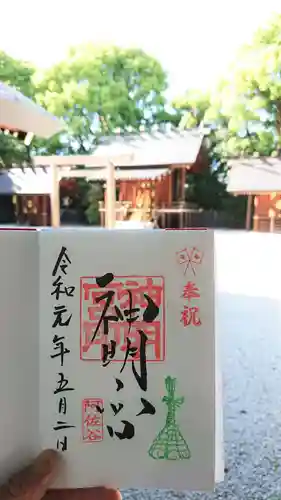 奉祝
神明宮
阿佐谷
令和元年五月二日